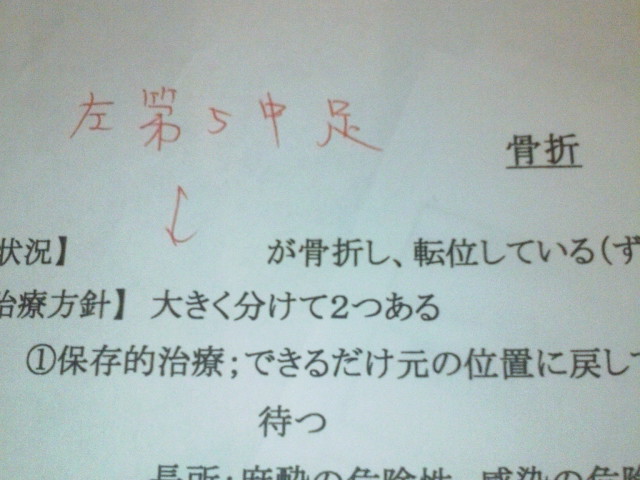 左第5中足
骨折
↓
状況】 が骨折し、転位している(ず
治療方針】 大きく分けて2つある
①保存的治療;できるだけ元の位置に戻して
待つ
長所:麻酔の危険性、感染の危険